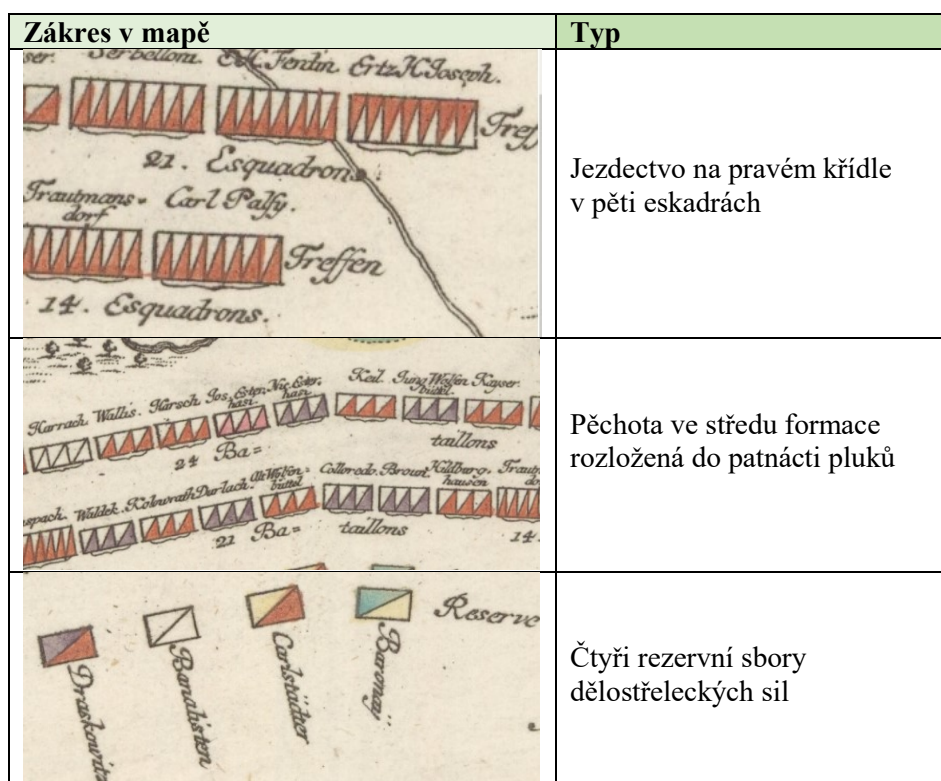 Zákres v mapě
Typ
ser. Serbelloni. E.H. Ferdin. Ertz H Joseph.
Treff
21. Esquadron
Trautmans-
dorf
Carl Palfy.
Treffen
14. Esquadrons.
Jezdectvo na pravém křídle
v pěti eskadrách
Harrach Wallis. Harsch Jos. Ester- Nic. Ester.
hasi. hasi.
Keil. Jung Wolfen Kayser.
büttel.
24 Ba=
taillons
spach. Waldek. Kolowrath Durlach. Alt Wolfen=
büttel
Colloredo. Broun. Hildburg=
hausen
Trautm
do
21 Ba=
taillons
14.
Pěchota ve středu formace
rozložená do patnácti pluků
Reserve
Draskowitz
Banalisten
Carlstädter
Baronaÿ
Čtyři rezervní sbory
dělostřeleckých sil